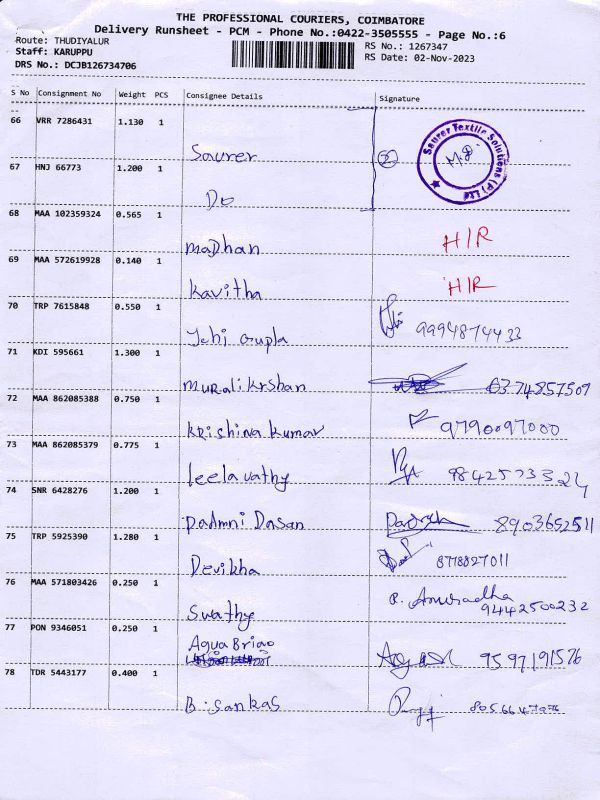 THE PROFESSIONAL COURIERS, COIMBATORE
Delivery Runsheet - PCM - Phone No.:0422-3505555 - Page No.:6
Route: THUDIYALUR
Staff: KARUPPU
DRS No.: DCJB126734706
RS No.: 1267347
RS Date: 02-Nov-2023
S No Consignment No Weight PCS Consignee Details Signature
66 VRR 7286431 1.130 1
Saurer
Saurer Textile Solutions (P) Ltd
M.D.
67 HNJ 66773 1.200 1
Do
68 MAA 102359324 0.565 1
Madhan H/R
69 MAA 572619928 0.140 1
Kavitha H/R
70 TRP 7615848 0.550 1
Gupla 9994874433
71 KDI 595661 1.300 1
Muralikrshan 6374857509
72 MAA 862085388 0.750 1
Krishna kumar 9790097000
73 MAA 862085379 0.775 1
leelavathy
74 SNR 6428276 1.200 1
Padmni Dasan 8903652511
75 TRP 5925390 1.280 1
Devikha
76 MAA 571803426 0.250 1
Swathy P. Anuradha
9442500232
77 PON 9346051 0.250 1
Aqua Briao
9597191576
78 TDR 5443177 0.400 1
B. Sankas